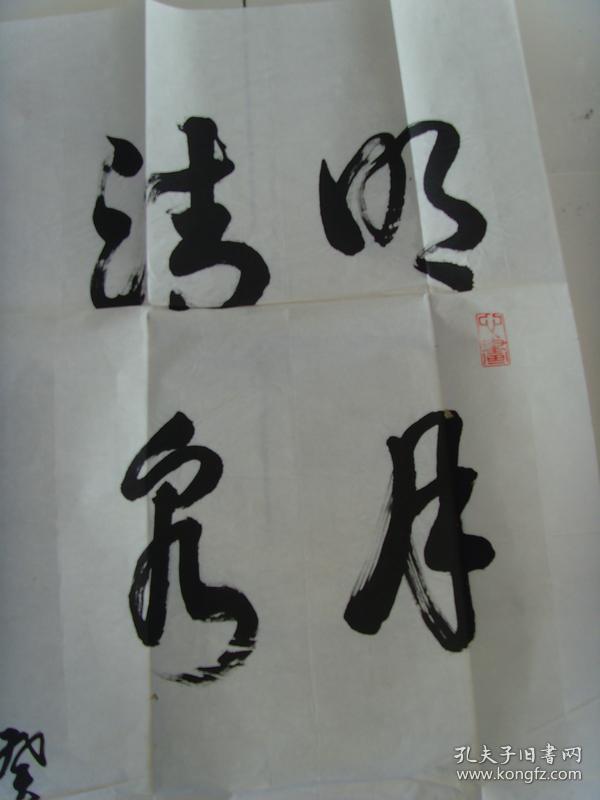 明月
清泉
癸
孔夫子旧書网
www.kongfz.com